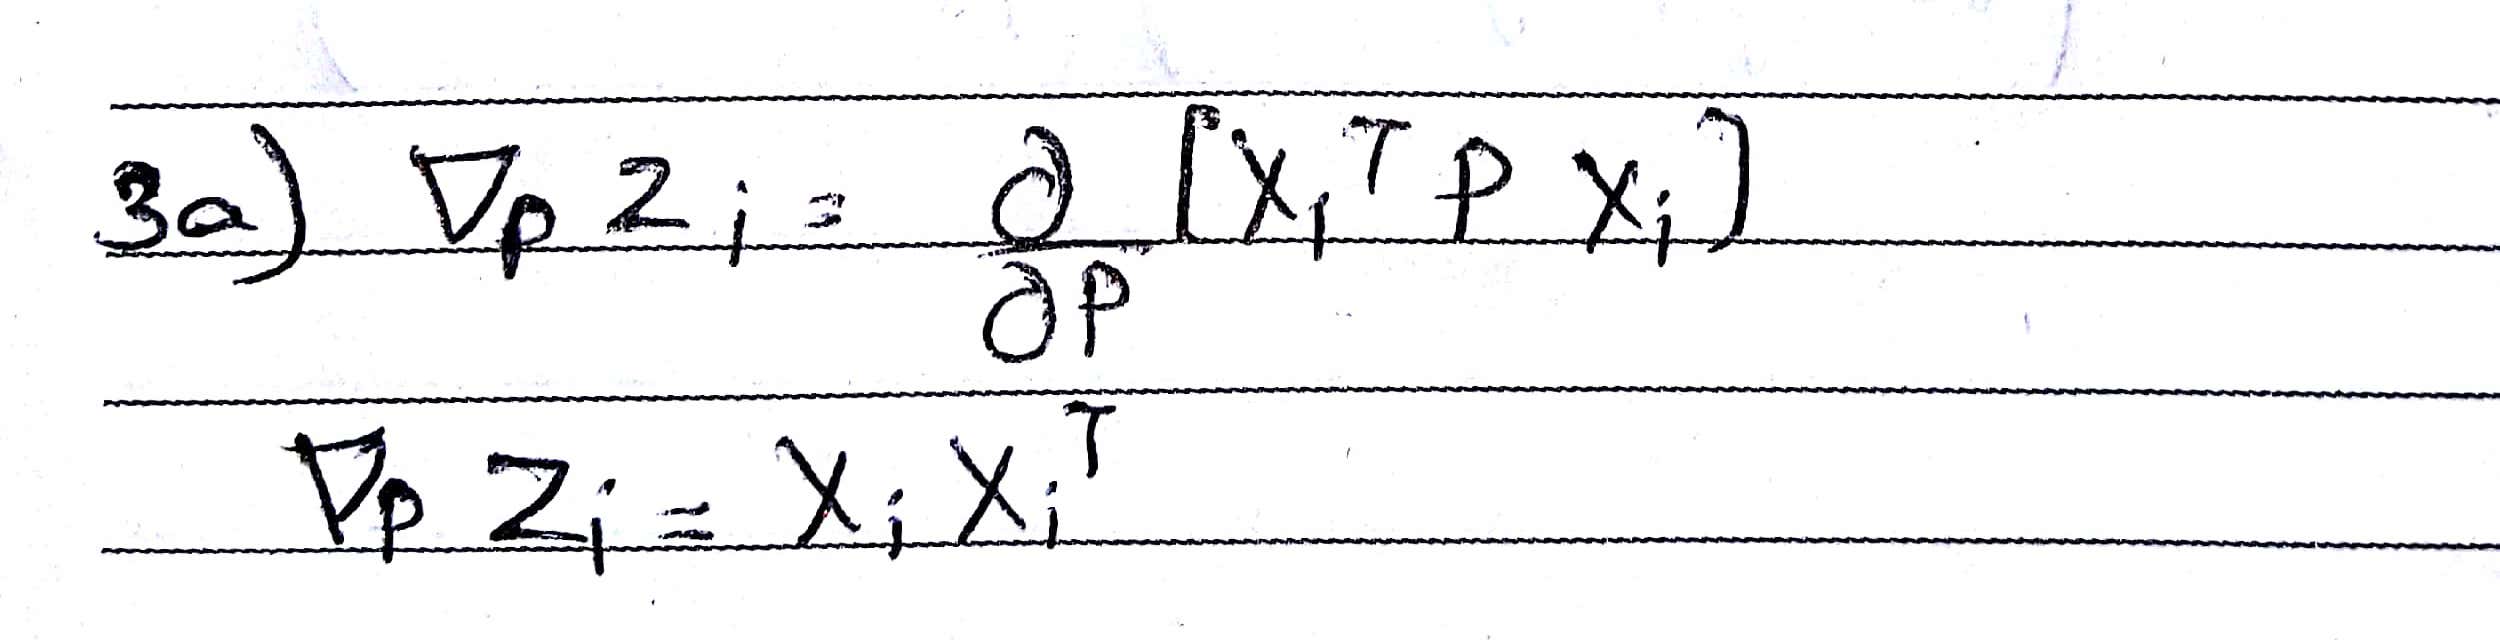 3a) ∇p Zi = ∂/∂P [Xi^T P Xi]
∇p Zi = Xi Xi^T